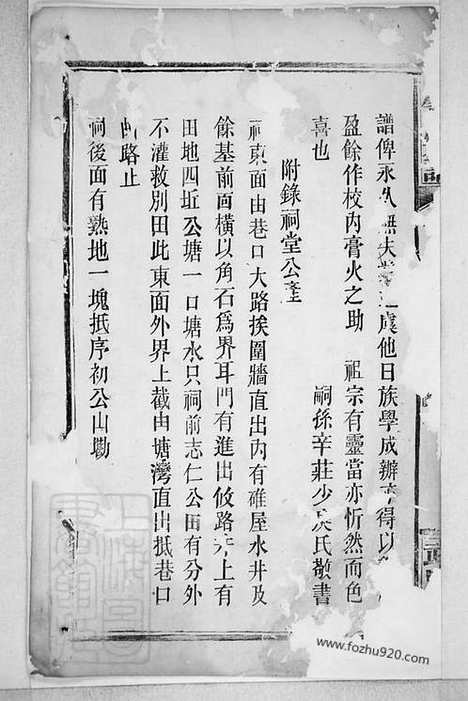 譜俾永久無失 虞他日族學成辦 得以
盈餘作校內膏火之助 祖宗有靈當亦忻然而色
喜也 嗣孫辛莊少 氏敬書
附錄祠堂公產
祠東面由巷口大路挨圍牆直出內有碓屋水井及
餘基前面橫以角石爲界耳門有進出攸路 上有
田地四坵公塘一口塘水只祠前志仁公田有分外
不灌救別田此東面外界上截由塘灣直出抵巷口
路止
祠後面有熟地一塊抵序初公山墈
www.fozhu920.com